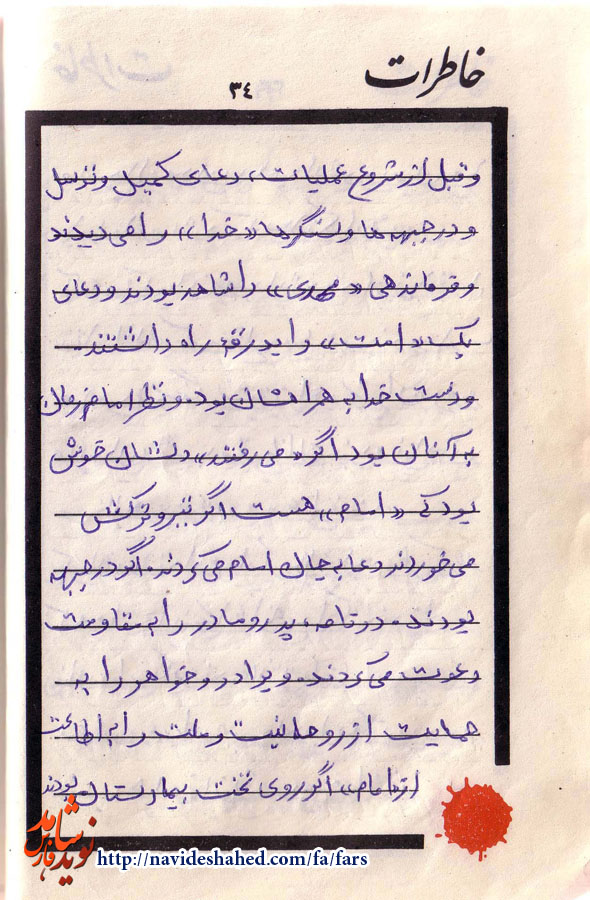 خاطرات
٣٤
وقبل از شروع عملیات، دعای کمیل و توسل
و در جبهه ها و سنگرها «خدا» را می دیدند
و فرماندهی «مهدی» را شاهد بودند و دعای
یک «امت» را بدرقهٔ راه داشتند.
و دست خدا به همراهشان بود. و نظر امام زمان
به آنان بود اگر «می رفتند» دلشان خوش
بود که «امام» هست اگر تیر و ترکش
می خوردند دعا به جان امام می کردند. اگر در جبهه
بودند. در نامه، پدر و مادر را به مقاومت
دعوت می کردند. و برادر و خواهر را به
حمایت از روحانیت و ملت را به اطاعت
از «امام» اگر روی تخت بیمارستان بودند
نوید شاهد فارس
http://navideshahed.com/fa/fars